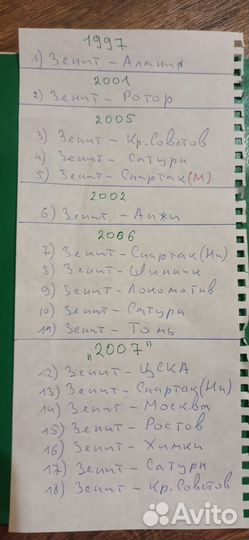 1997
1) Зенит - Алания
2001
2) Зенит - Ротор
2005
3) Зенит - Кр.Советов
4) Зенит - Сатурн
5) Зенит - Спартак(М)
2002
6) Зенит - Анжи
2006
7) Зенит - Спартак(Нч)
8) Зенит - Шинник
9) Зенит - Локомотив
10) Зенит - Сатурн
11) Зенит - Томь
"2007"
12) Зенит - ЦСКА
13) Зенит - Спартак(Нч)
14) Зенит - Москва
15) Зенит - Ростов
16) Зенит - Химки
17) Зенит - Сатурн
18) Зенит - Кр.Советов
Avito